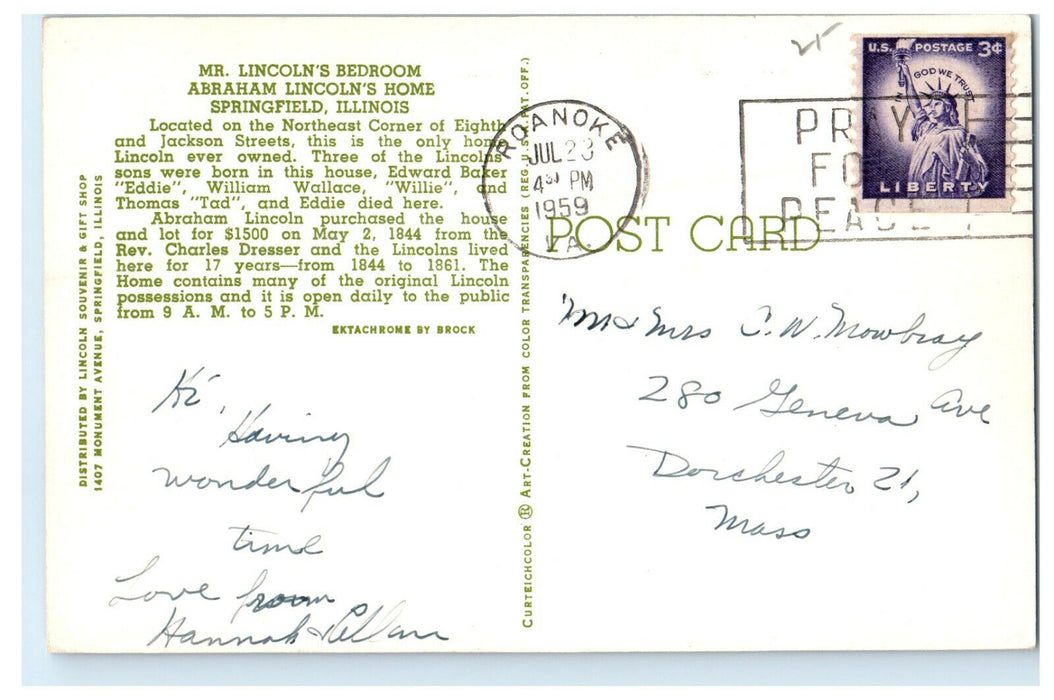 MR. LINCOLN'S BEDROOM
ABRAHAM LINCOLN'S HOME
SPRINGFIELD, ILLINOIS
Located on the Northeast Corner of Eighth
and Jackson Streets, this is the only home
Lincoln ever owned. Three of the Lincolns'
sons were born in this house, Edward Baker
"Eddie", William Wallace, "Willie", and
Thomas "Tad", and Eddie died here.
Abraham Lincoln purchased the house
and lot for $1500 on May 2, 1844 from the
Rev. Charles Dresser and the Lincolns lived
here for 17 years—from 1844 to 1861. The
Home contains many of the original Lincoln
possessions and it is open daily to the public
from 9 A. M. to 5 P. M.
EKTACHROME BY BROCK
DISTRIBUTED BY LINCOLN SOUVENIR & GIFT SHOP
1407 MONUMENT AVENUE, SPRINGFIELD, ILLINOIS
Hi,
Having
wonderful
time
Love from
Hannah &
CURTEICHCOLOR ® ART-CREATION FROM COLOR TRANSPARENCIES (REG. U.S. PAT. OFF.)
ROANOKE
JUL 23
PM
1959
VA.
POST CARD
25
U.S. POSTAGE 3¢
IN GOD WE TRUST
LIBERTY
PRAY
FOR
PEACE
Mr & Mrs C. W. Mowbray
280 Geneva Ave
Dorchester 21,
Mass